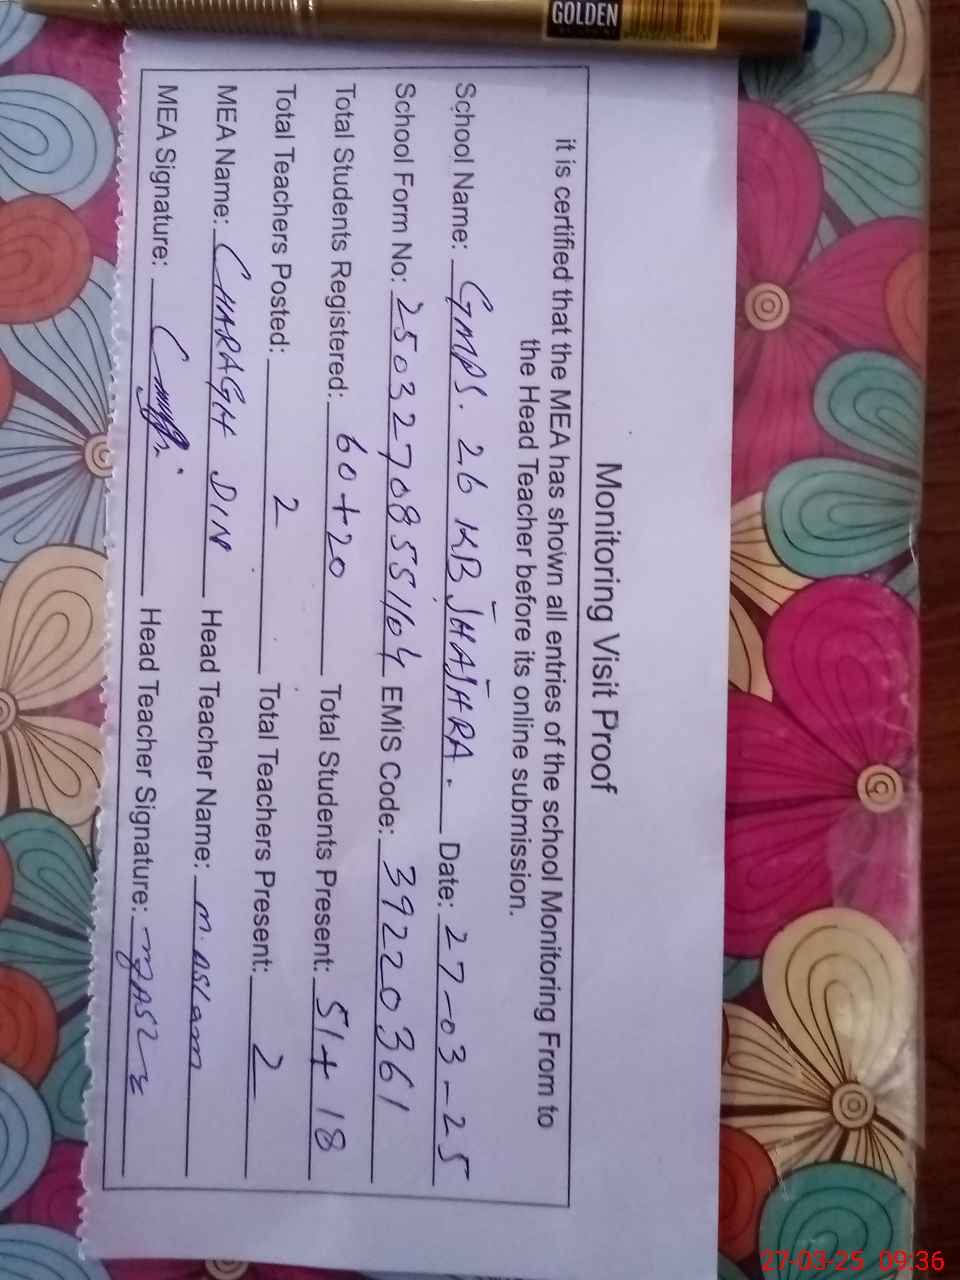 GOLDEN
Monitoring Visit Proof
it is certified that the MEA has shown all entries of the school Monitoring From to
the Head Teacher before its online submission.
School Name: GMPS. 26 KB JHAJHRA. Date: 27-03-25
School Form No: 25032708551104 EMIS Code: 39220361
Total Students Registered: 60+20 Total Students Present: 51+18
Total Teachers Posted: 2 Total Teachers Present: 2
MEA Name: CHARAGH DIN Head Teacher Name: M. ASLam
MEA Signature: Head Teacher Signature:
27-03-25 09:36